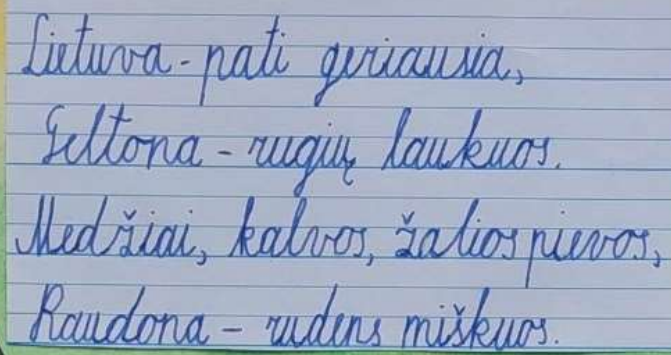 Lietuva - pati geriausia,
Geltona - rugių laukuos.
Medžiai, kalvos, žalios pievos,
Raudona - rudens miškuos.